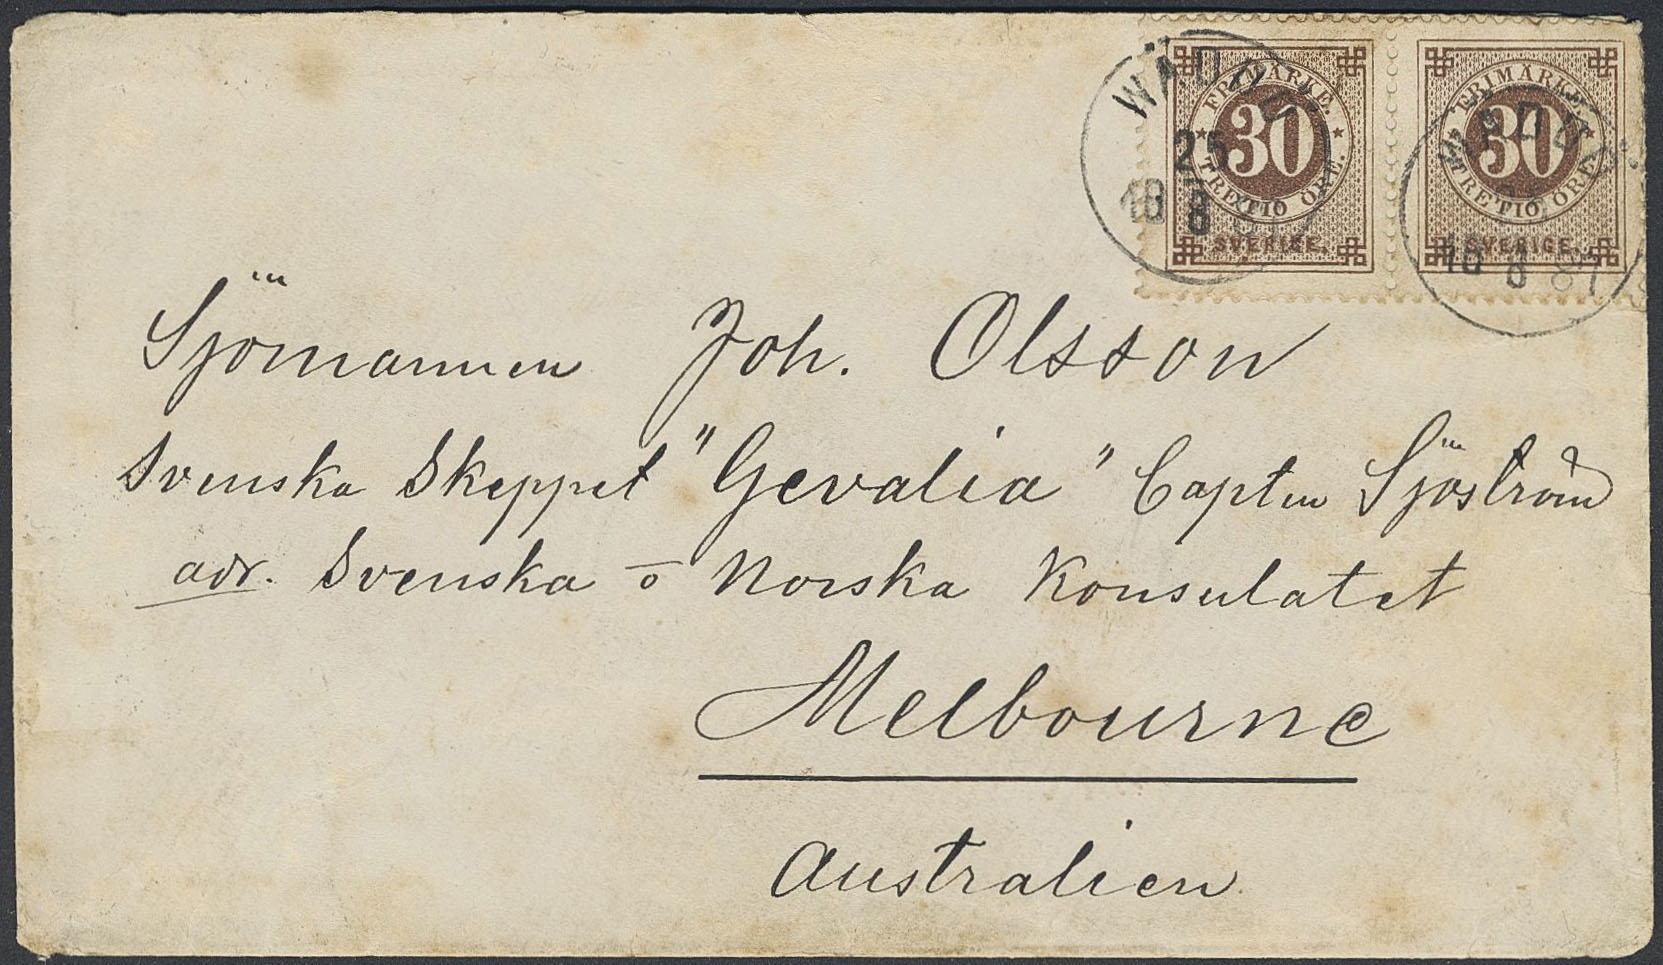 FRIMÄRKE. FRIMÄRKE.
30 30
TRETTIO ÖRE. TRETTIO ÖRE.
SVERIGE. SVERIGE.
WÄDDÖ
25
18 8
WÄDDÖ
18 8 87
Sjömannen Joh. Olsson
Svenska Skeppet "Gevalia" Capten Sjöström
adr. Svenska o Norska Konsulatet
Melbourne
Australien